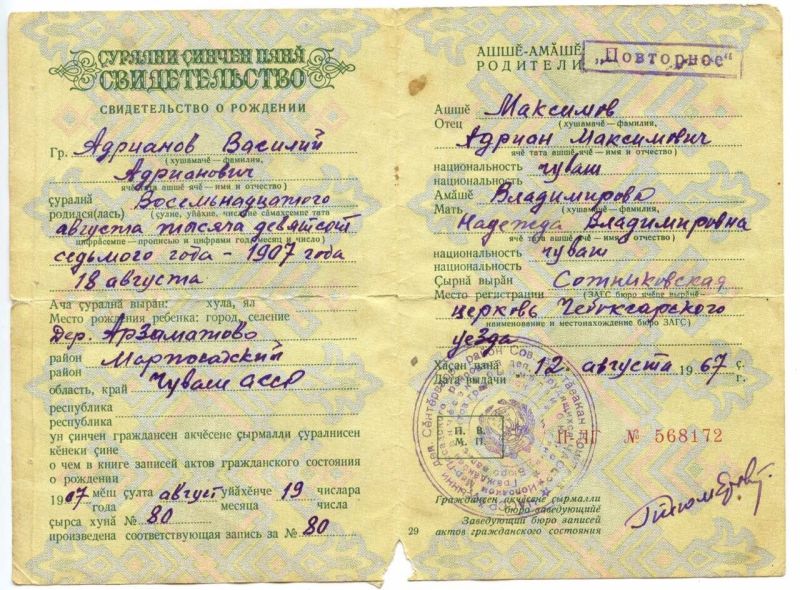 ҪУРАЛНИ ҪИНЧЕН ПАНӐ
СВИДЕТЕЛЬСТВО
СВИДЕТЕЛЬСТВО О РОЖДЕНИИ
Гр. Адрианов Василий
(хушамачӗ — фамилия,
Адрианович
ячӗ тата ашшӗ ячӗ — имя и отчество)
ҫуралнӑ Восемьнадцатого
родился(лась) (ҫулне, уйӑхне, числине сӑмахсемпе тата
августа тысяча девятсот
цифрӑсемпе — прописью и цифрами год, месяц и число)
седьмого года - 1907 года
18 августа
Ача ҫуралнӑ вырӑн: хула, ял
Место рождения ребенка: город, селение
Дер. Арзаматово
район Марпосадский
область, край Чуваш АССР
республика
республика
ун ҫинчен граждансен акчӗсене ҫырмалли ҫуралнисен
кӗнеки ҫине
о чем в книге записей актов гражданского состояния
о рождении
1907 мӗш ҫулта август уйӑхӗнче 19 числара
года месяца числа
ҫырса хунӑ № 80
произведена соответствующая запись за № 80
АШШӖ-АМӐШӖ
РОДИТЕЛИ
„Повторное“
Ашшӗ Максимов
Отец (хушамачӗ — фамилия,
Адриан Максимович
ячӗ тата ашшӗ ячӗ — имя и отчество)
национальность чуваш
национальность
Амӑшӗ Владимирова
Мать (хушамачӗ — фамилия,
Надежда Владимировна
ячӗ тата ашшӗ ячӗ — имя и отчество)
национальность чуваш
национальность
Ҫырнӑ вырӑн Сотниковская
Место регистрации (ЗАГС бюро ячӗпе вырӑнӗ —
церковь Чебоксарского
наименование и местонахождение бюро ЗАГС)
уезда
Хӑҫан панӑ 12. августа 1967 ҫ.
Дата выдачи г.
П. В.
М. П.
II-ЛГ № 568172
Граждансен акчӗсене ҫырмалли
бюро заведующийӗ
Заведующий бюро записей
29 актов гражданского состояния